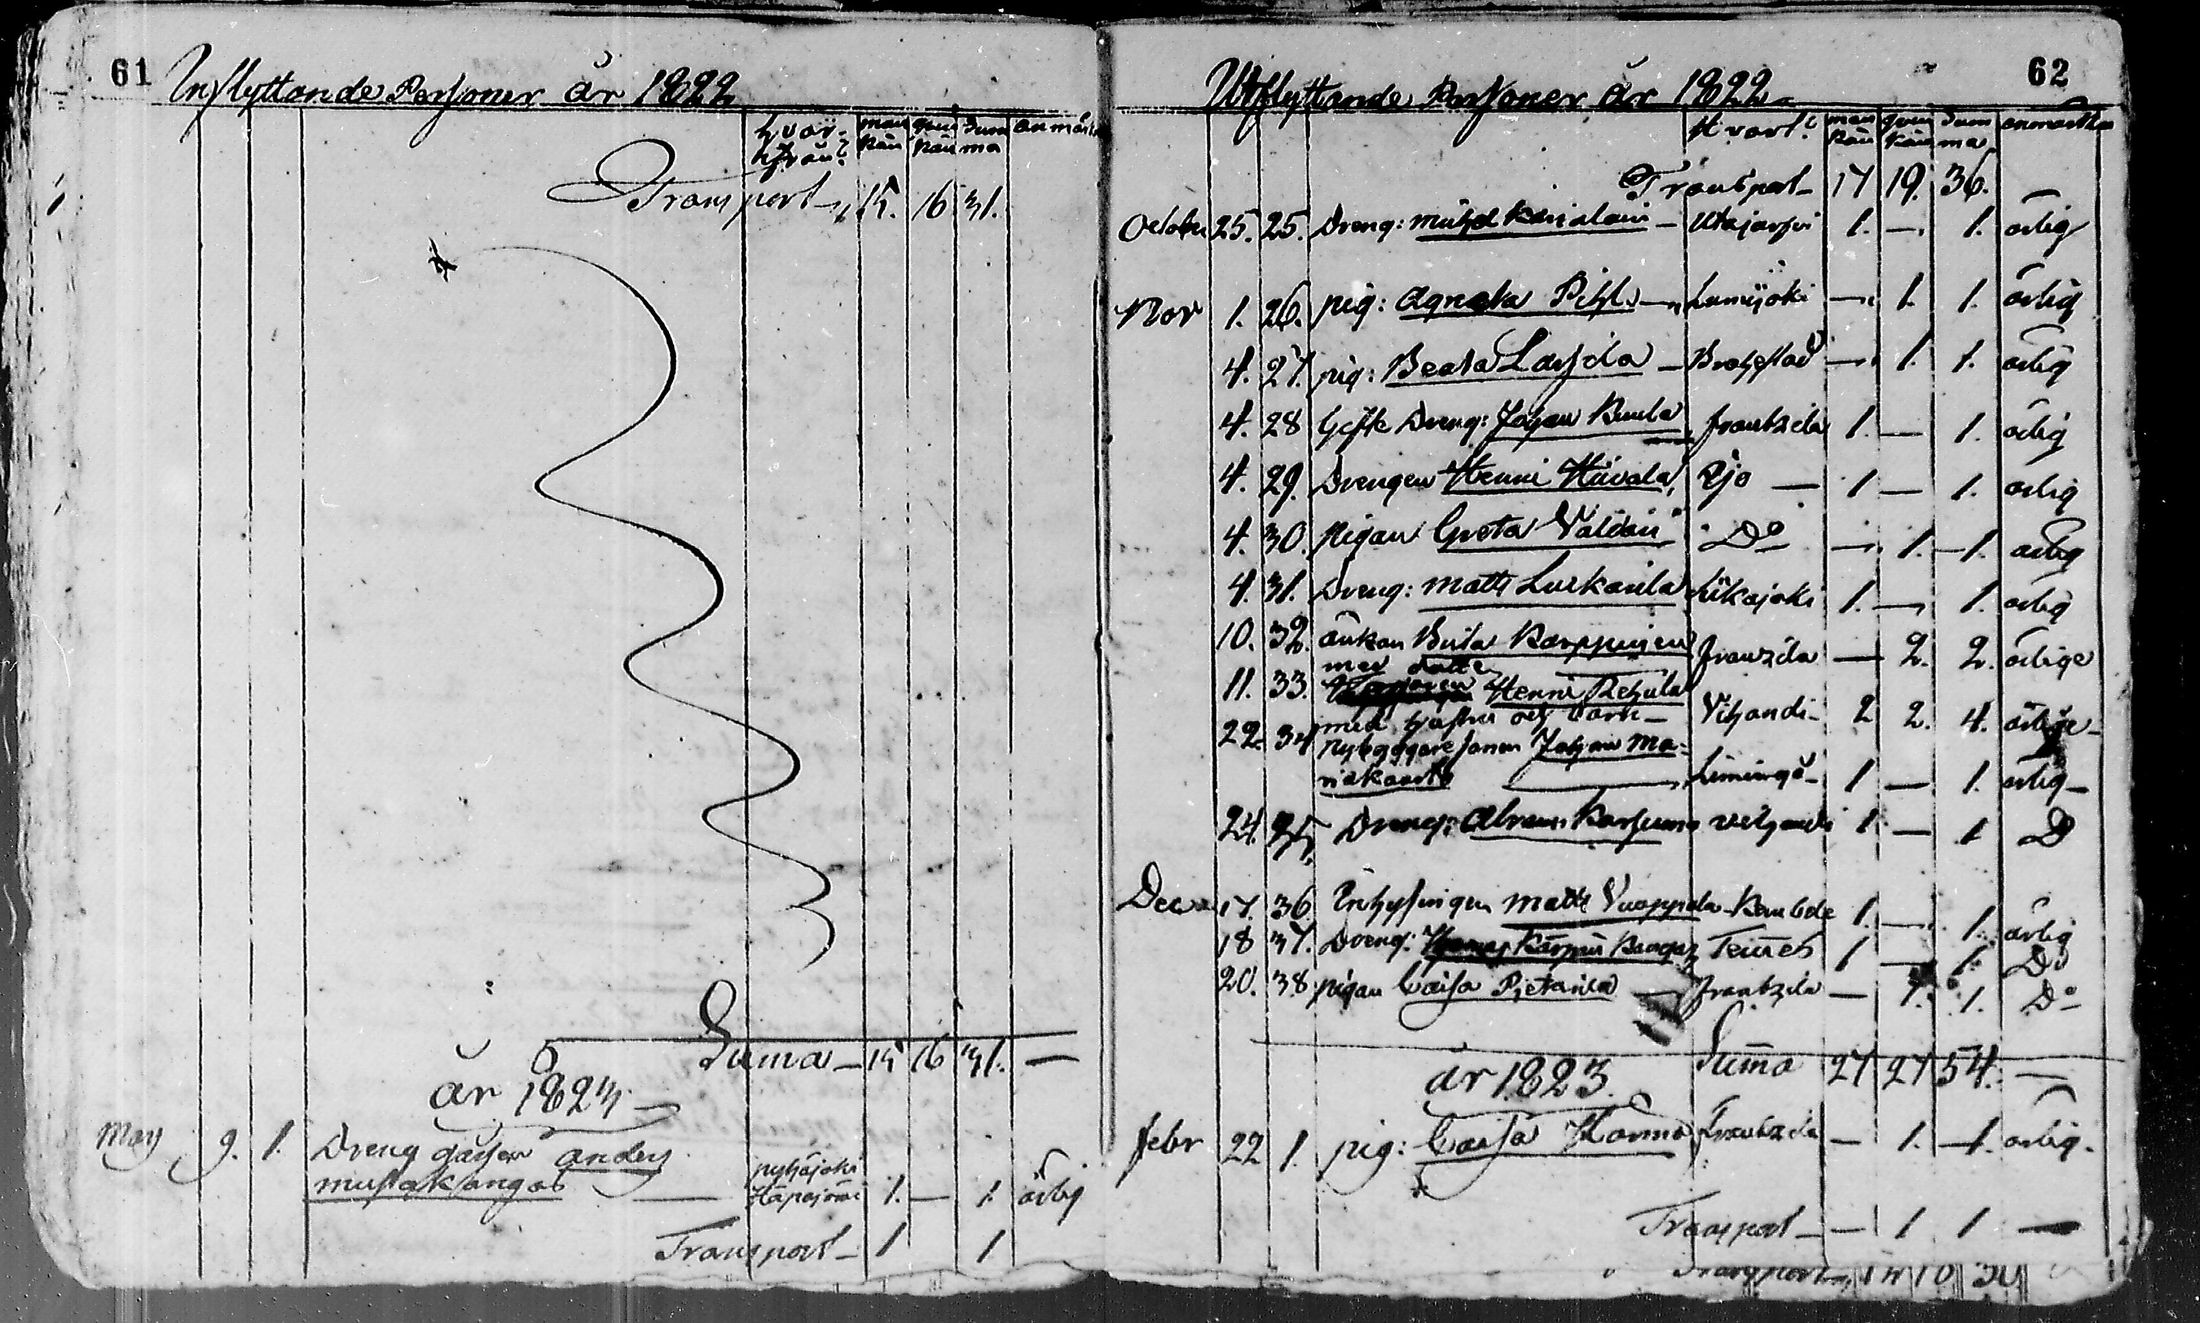 61
Inflyttande Personer år 1822
hvar- ifrån? man kön qvin kön Sum ma anmärkn
Transport 15. 16 31.
Suma 15 16 31. —
år 1823
May 9. 1. Dreng gåssen anders
mustakangas — pyhäjoki Hapajärvi 1. — 1. ärlig
Transport — 1 1
62
Utflyttande Personer år 1822
Hvart? man kön qvin kön Sum ma anmärkn
Transport — 17 19. 36.
October 25. 25. Dreng: michel Karialain — Utajärfvi 1. — 1. ärlig
Nov 1. 26. pig: Agneta Pihl — Lumijoki — 1. 1. ärlig
4. 27. pig: Beata Lassila — Brahestad — 1. 1. ärlig
4. 28 Gifte Dreng: Johan Runla frantzila 1. — 1. ärlig
4. 29. Drengen Henric Hävälä, Ijo — 1 — 1. ärlig
4. 30. pigan Greta Valdäin Do — 1. 1. ärlig
4. 31. Dreng: matts Luskarila Siikajoki 1. — 1. ärlig
10. 32. änkan Brita Karppinen
med dotter franzila — 2. 2. ärlige
11. 33. Henric Pehula
med hustru och barn — Vihandi 2 2. 4. ärlige
22. 34 Nybyggare sonen Johan Ma-
niakaarto Limingo — 1 — 1. ärlig —
24. 35. Dreng: Abram Karhuma vihandi 1. — 1 Do
Dec 17. 36 Inhysingen matts Vuoppola Kembele 1. — 1. ärlig
18 37. Dreng: Kangas Temmes 1 — 1. Do
20. 38 pigan Caisa Pietarila — frantzila — 1. 1. Do
Summa 27 27 54. —
år 1823.
febr 22 1. pig: Caisa Harma frantzila — 1. 1. ärlig.
Transport — 1 1 —